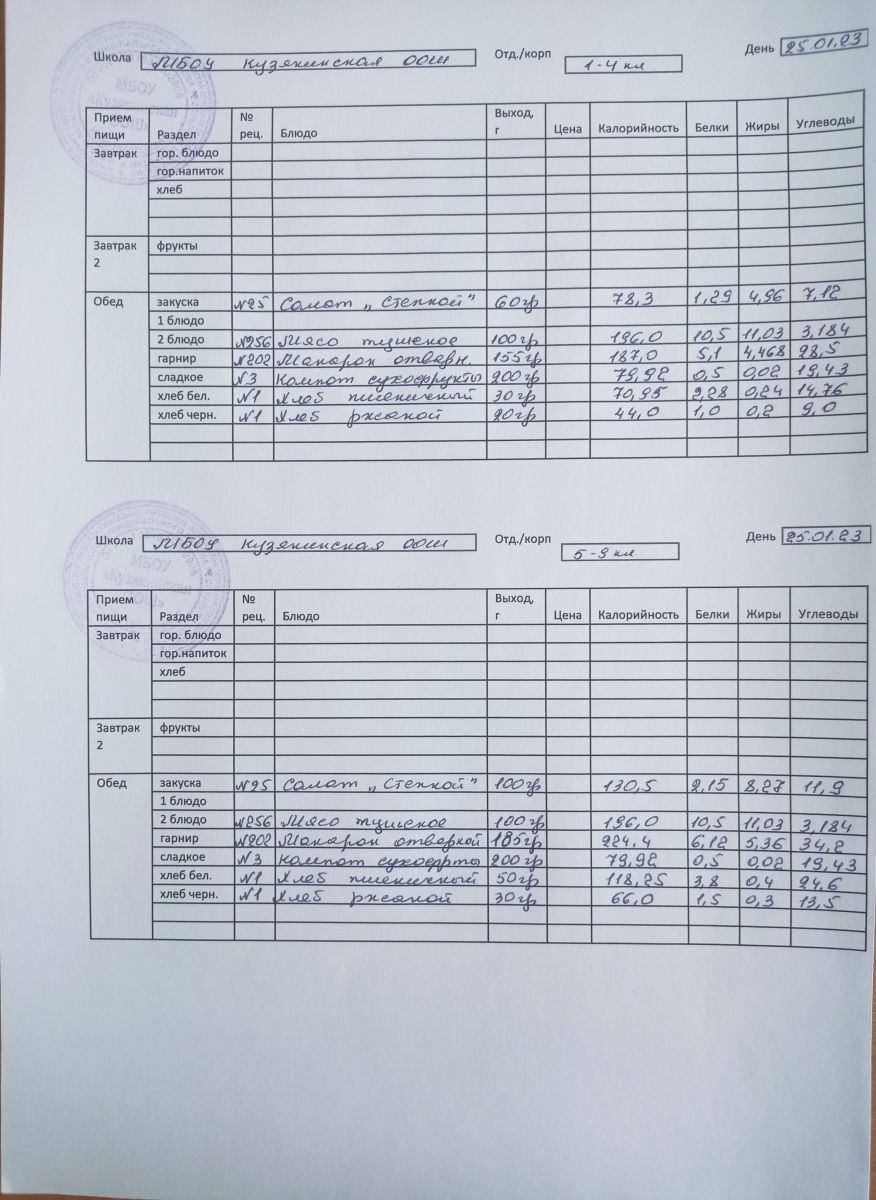 Школа МБОУ Кузякинская ООШ Отд./корп 1-4 кл День 25.01.23
МБОУ
«Кузякинская
ООШ»
Прием пищи Раздел № рец. Блюдо Выход, г Цена Калорийность Белки Жиры Углеводы
Завтрак гор. блюдо
гор.напиток
хлеб
Завтрак 2 фрукты
Обед закуска №25 Салат „Степной" 60гр 78,3 1,29 4,96 7,12
1 блюдо
2 блюдо №256 Мясо тушеное 100гр 196,0 10,5 11,03 3,184
гарнир №202 Макарон отварн. 155гр 187,0 5,1 4,468 28,5
сладкое №3 Компот сухофрукты 200гр 79,92 0,5 0,02 19,43
хлеб бел. №1 Хлеб пшеничный 30гр 70,95 2,28 0,24 14,76
хлеб черн. №1 Хлеб ржаной 20гр 44,0 1,0 0,2 9,0
Школа МБОУ Кузякинская ООШ Отд./корп 5-9 кл День 25.01.23
МБОУ
«Кузякинская
ООШ»
Прием пищи Раздел № рец. Блюдо Выход, г Цена Калорийность Белки Жиры Углеводы
Завтрак гор. блюдо
гор.напиток
хлеб
Завтрак 2 фрукты
Обед закуска №25 Салат „Степной" 100гр 130,5 2,15 8,27 11,9
1 блюдо
2 блюдо №256 Мясо тушеное 100гр 196,0 10,5 11,03 3,184
гарнир №202 Макарон отварной 185гр 224,4 6,12 5,36 34,2
сладкое №3 Компот сухофрты 200гр 79,92 0,5 0,02 19,43
хлеб бел. №1 Хлеб пшеничный 50гр 118,25 3,8 0,4 24,6
хлеб черн. №1 Хлеб ржаной 30гр 66,0 1,5 0,3 13,5